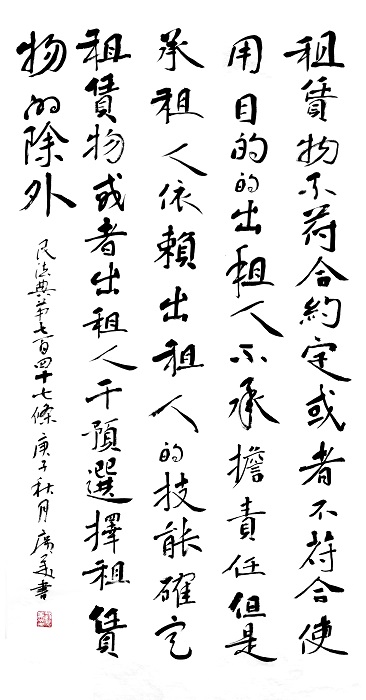 租賃物不符合約定或者不符合使
用目的的出租人不承擔責任但是
承租人依賴出租人的技能確定
租賃物或者出租人干預選擇租賃
物的除外
民法典第七百四十七條 庚子秋月 書